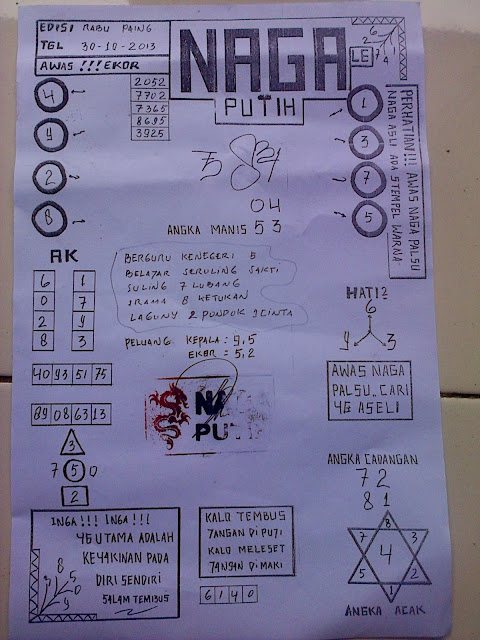 EDISI RABU PAING
TGL 30-10-2013
AWAS !!! EKOR
NAGA
PUTIH
LE
6
2
7 4
4
9
2
8
2052
7702
7365
8695
3925
1
3
7
5
PERHATIAN!!! AWAS NAGA PALSU
NAGA ASLI ADA STEMPEL WARNA
04
ANGKA MANIS 53
AK
6 1
0 7
2 9
8 3
BERGURU KENEGERI 5
BELAJAR SERULING SAKTI
SULING 7 LUBANG
IRAMA 8 KETUKAN
LAGUNY 2 PONDOK 9CINTA
PELUANG KEPALA : 9,5
EKOR : 5,2
HATI2
6
9 3
40 93 51 75
89 08 63 13
NA
PUTI
AWAS NAGA
PALSU.. CARI
YG ASELI
3
7 5 0
2
ANGKA CADANGAN
72
81
INGA!!! INGA!!!
YG UTAMA ADALAH
KEYAKINAN PADA
DIRI SENDIRI
SALAM TEMBUS
8
5
9
KALO TEMBUS
JANGAN DI PUJI
KALO MELESET
JANGAN DI MAKI
6 1 4 0
8
7 3
4
5 1
2
ANGKA ACAK